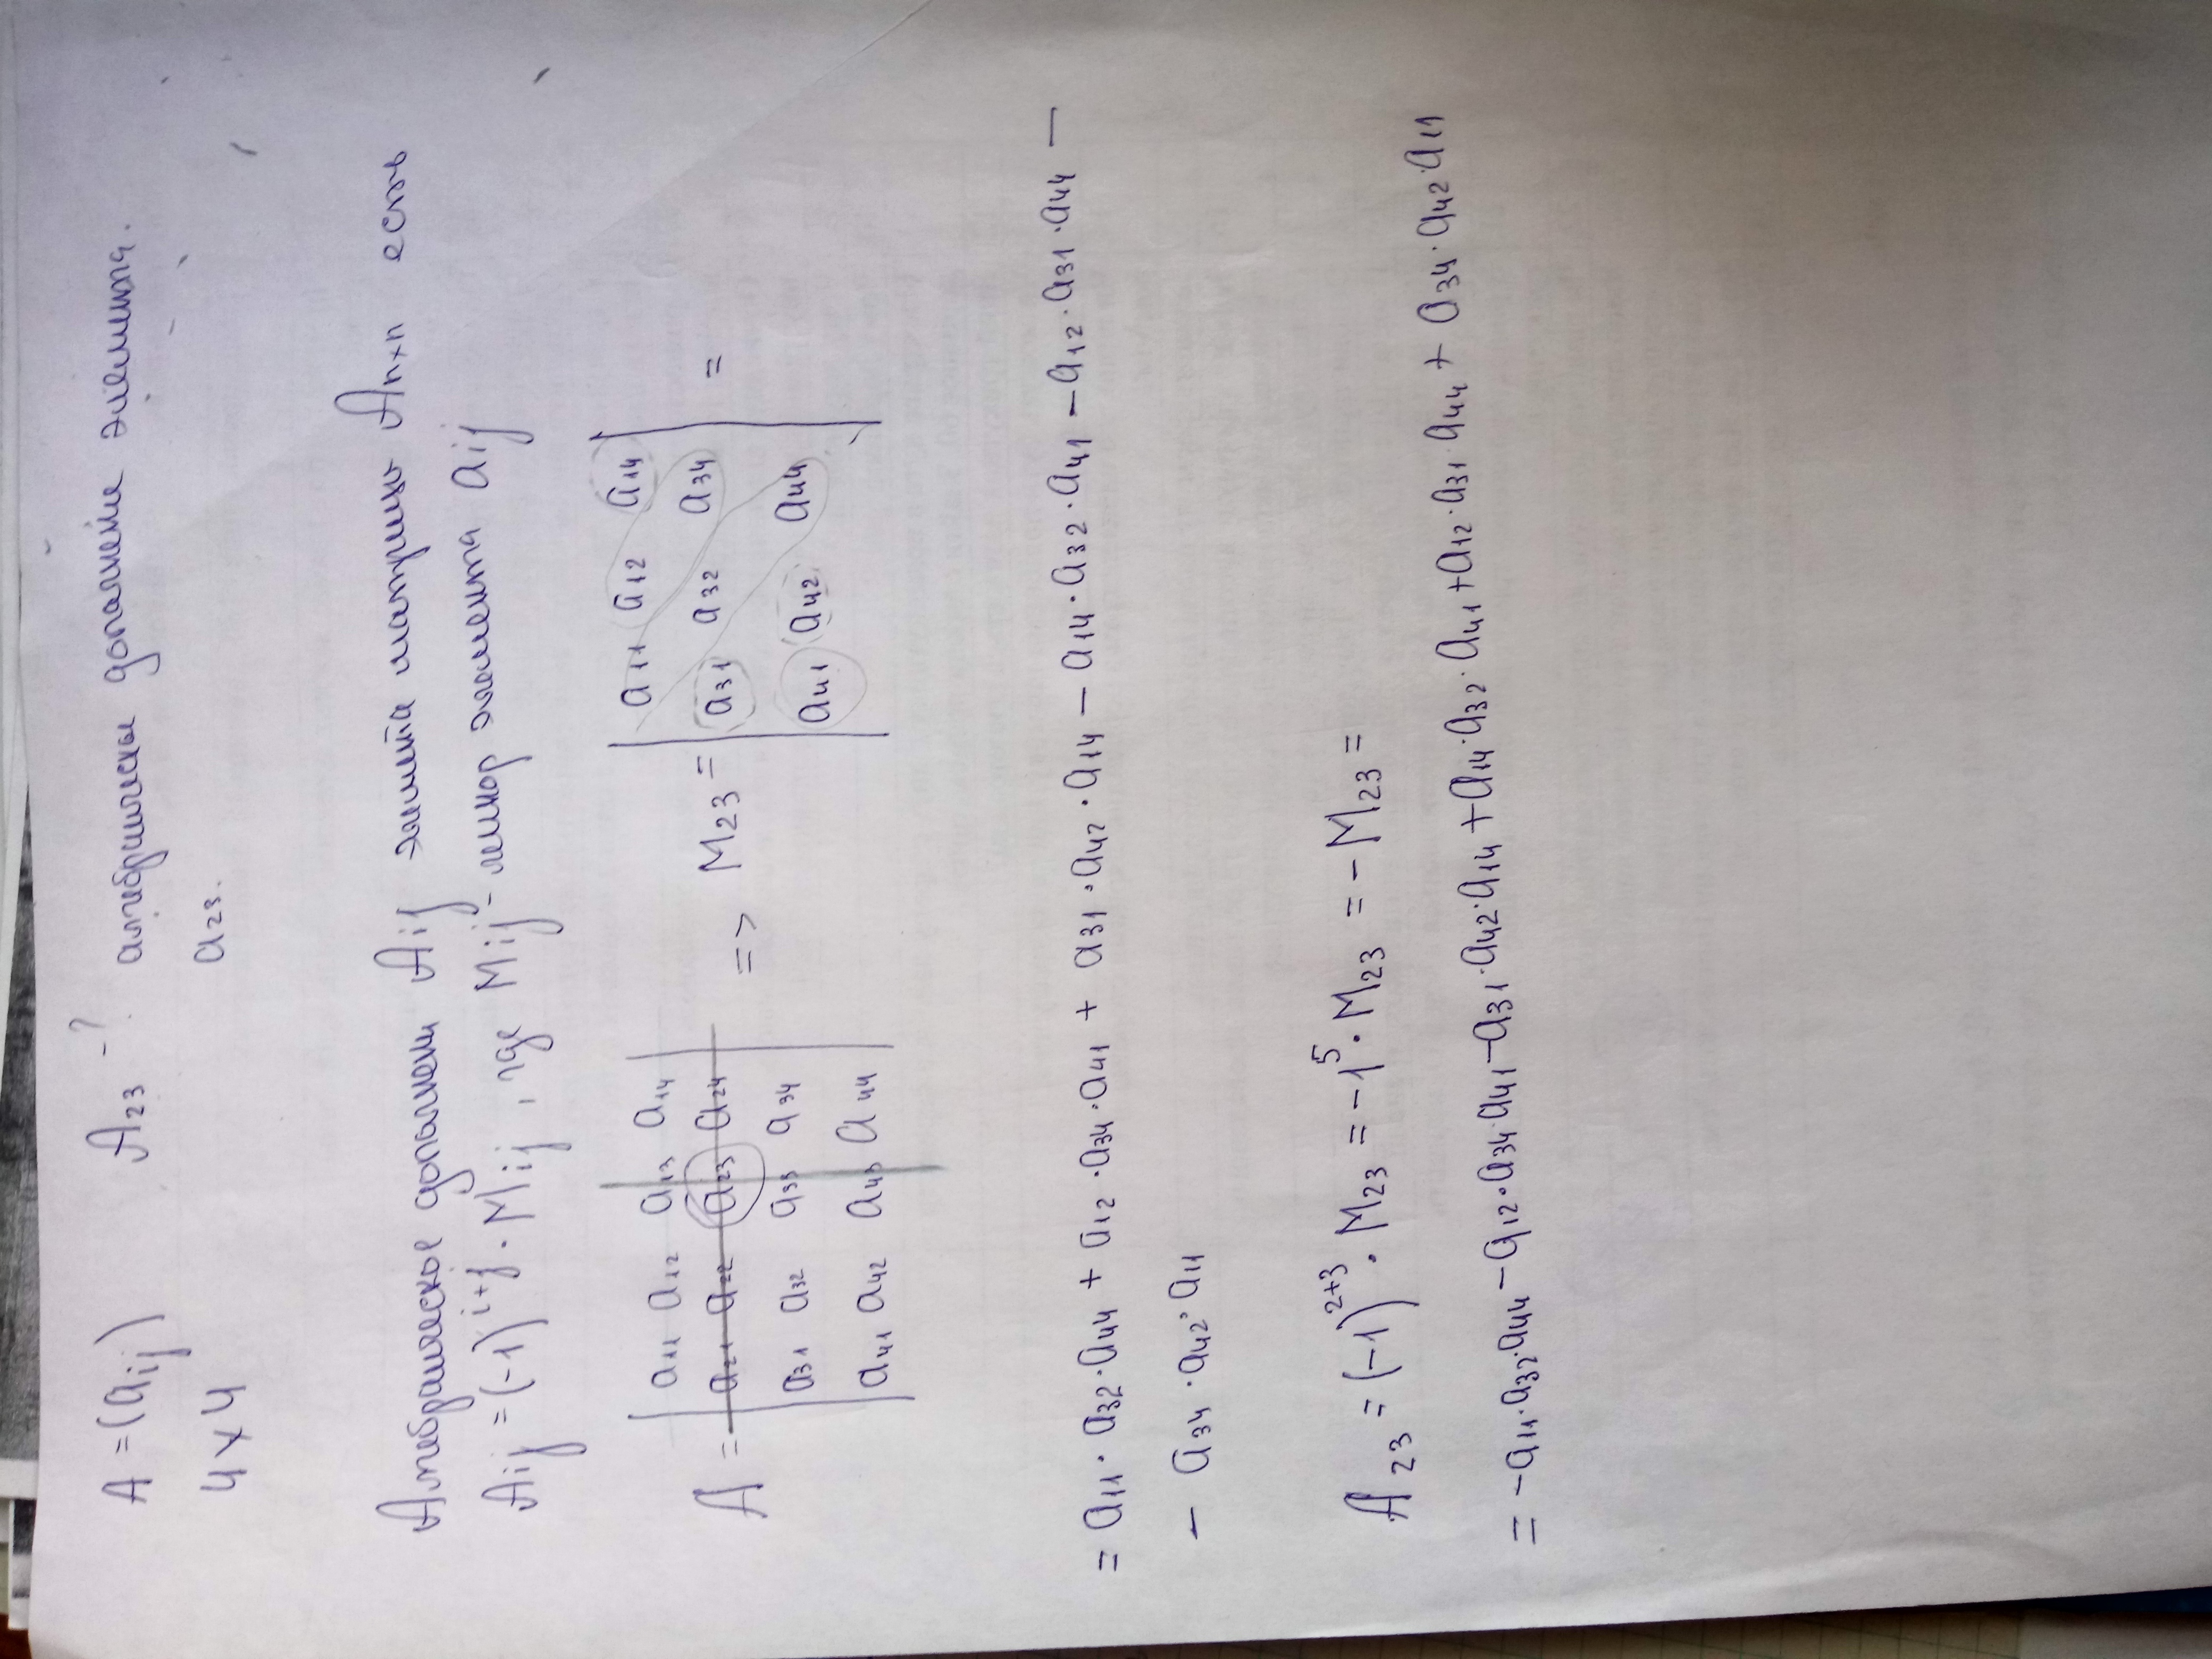 A = (aij) A23 -? алгебраическ дополнение элемента.
4×4 a23.
Алгебраическое дополнен Aij элемента матрицы An×n есть
Aij = (-1)^i+j · Mij, где Mij - минор элемента aij
a11 a12 a13 a14
a21 a22 a23 a24
A = a31 a32 a33 a34
a41 a42 a43 a44
=> M23 =
a11 a12 a14
a31 a32 a34
a41 a42 a44
=
= a11 · a32 · a44 + a12 · a34 · a41 + a31 · a42 · a14 - a14 · a32 · a41 - a12 · a31 · a44 -
- a34 · a42 · a11
A23 = (-1)^2+3 · M23 = -1^5 · M23 = - M23 =
= -a11 · a32 · a44 - a12 · a34 · a41 - a31 · a42 · a14 + a14 · a32 · a41 + a12 · a31 · a44 + a34 · a42 · a11